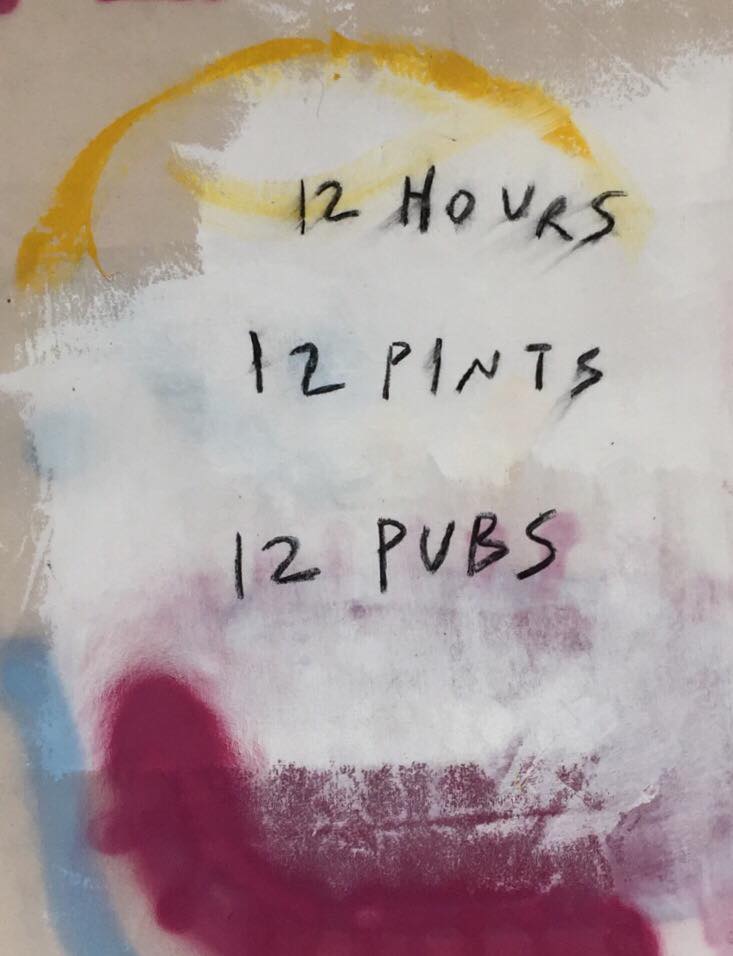 12 HOURS
12 PINTS
12 PUBS